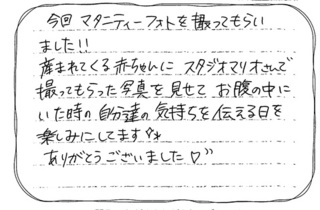 今回 マタニティーフォトを撮ってもらい
ました!!
産まれてくる赤ちゃんに スタジオマリオさんで
撮ってもらった写真を見せて お腹の中に
いた時の 自分達の 気持ちを 伝える日を
楽しみにしてます
ありがとうございました♡